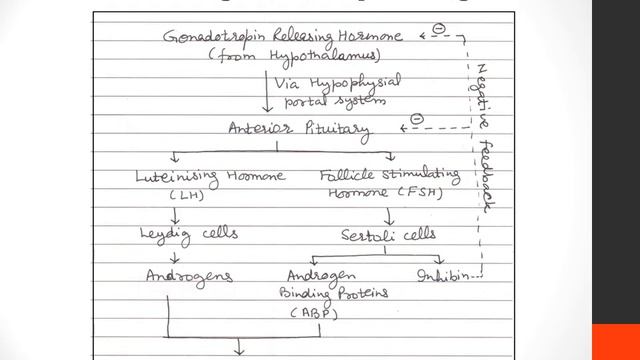 Gonadotropin Releasing Hormone
(from Hypothalamus)
Via Hypophysial
portal system
Anterior Pituitary
Luteinising Hormone
(LH)
Follicle stimulating
Hormone (FSH)
Leydig cells
Sertoli cells
Androgens
Androgen
Binding Proteins
(ABP)
Inhibin
Negative feedback